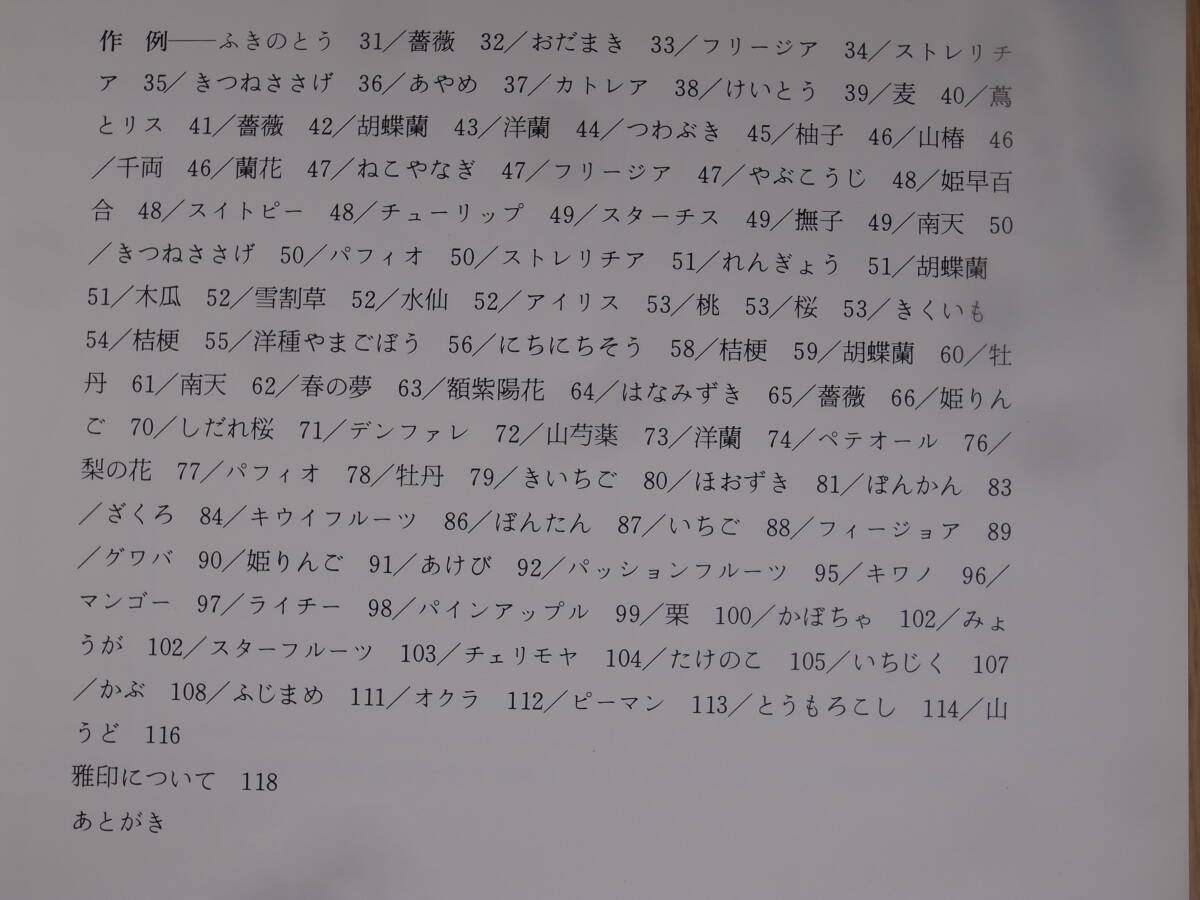 作　例——ふきのとう　31／薔薇　32／おだまき　33／フリージア　34／ストレリチ
ア　35／きつねささげ　36／あやめ　37／カトレア　38／けいとう　39／麦　40／蔦
とリス　41／薔薇　42／胡蝶蘭　43／洋蘭　44／つわぶき　45／柚子　46／山椿　46
／千両　46／蘭花　47／ねこやなぎ　47／フリージア　47／やぶこうじ　48／姫早百
合　48／スイトピー　48／チューリップ　49／スターチス　49／撫子　49／南天　50
／きつねささげ　50／パフィオ　50／ストレリチア　51／れんぎょう　51／胡蝶蘭
51／木瓜　52／雪割草　52／水仙　52／アイリス　53／桃　53／桜　53／きくいも
54／桔梗　55／洋種やまごぼう　56／にちにちそう　58／桔梗　59／胡蝶蘭　60／牡
丹　61／南天　62／春の夢　63／額紫陽花　64／はなみずき　65／薔薇　66／姫りん
ご　70／しだれ桜　71／デンファレ　72／山芍薬　73／洋蘭　74／ペテオール　76／
梨の花　77／パフィオ　78／牡丹　79／きいちご　80／ほおずき　81／ぽんかん　83
／ざくろ　84／キウイフルーツ　86／ぼんたん　87／いちご　88／フィージョア　89
／グワバ　90／姫りんご　91／あけび　92／パッションフルーツ　95／キワノ　96／
マンゴー　97／ライチー　98／パインアップル　99／栗　100／かぼちゃ　102／みょ
うが　102／スターフルーツ　103／チェリモヤ　104／たけのこ　105／いちじく　107
／かぶ　108／ふじまめ　111／オクラ　112／ピーマン　113／とうもろこし　114／山
うど　116
雅印について　118
あとがき